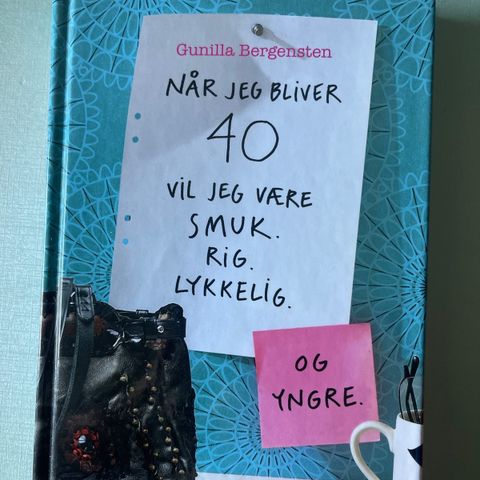 Gunilla Bergensten
NÅR JEG BLIVER
40
VIL JEG VÆRE
SMUK.
RIG.
LYKKELIG.
OG
YNGRE.